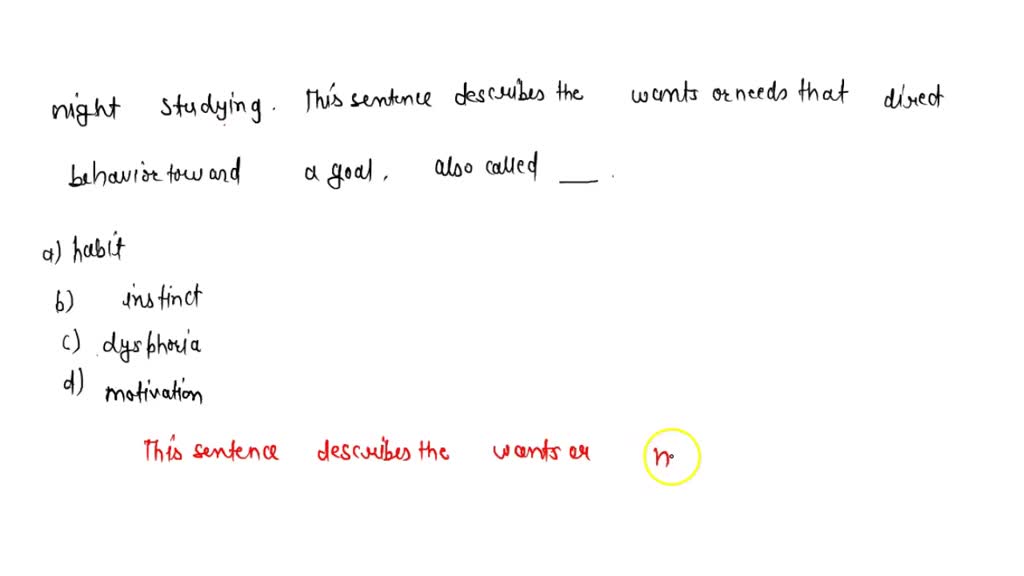 night studying. This sentence describes the wants or needs that direct
behavior toward a goal, also called ___.
a) habit
b) instinct
c) dysphoria
d) motivation
This sentence describes the wants or n